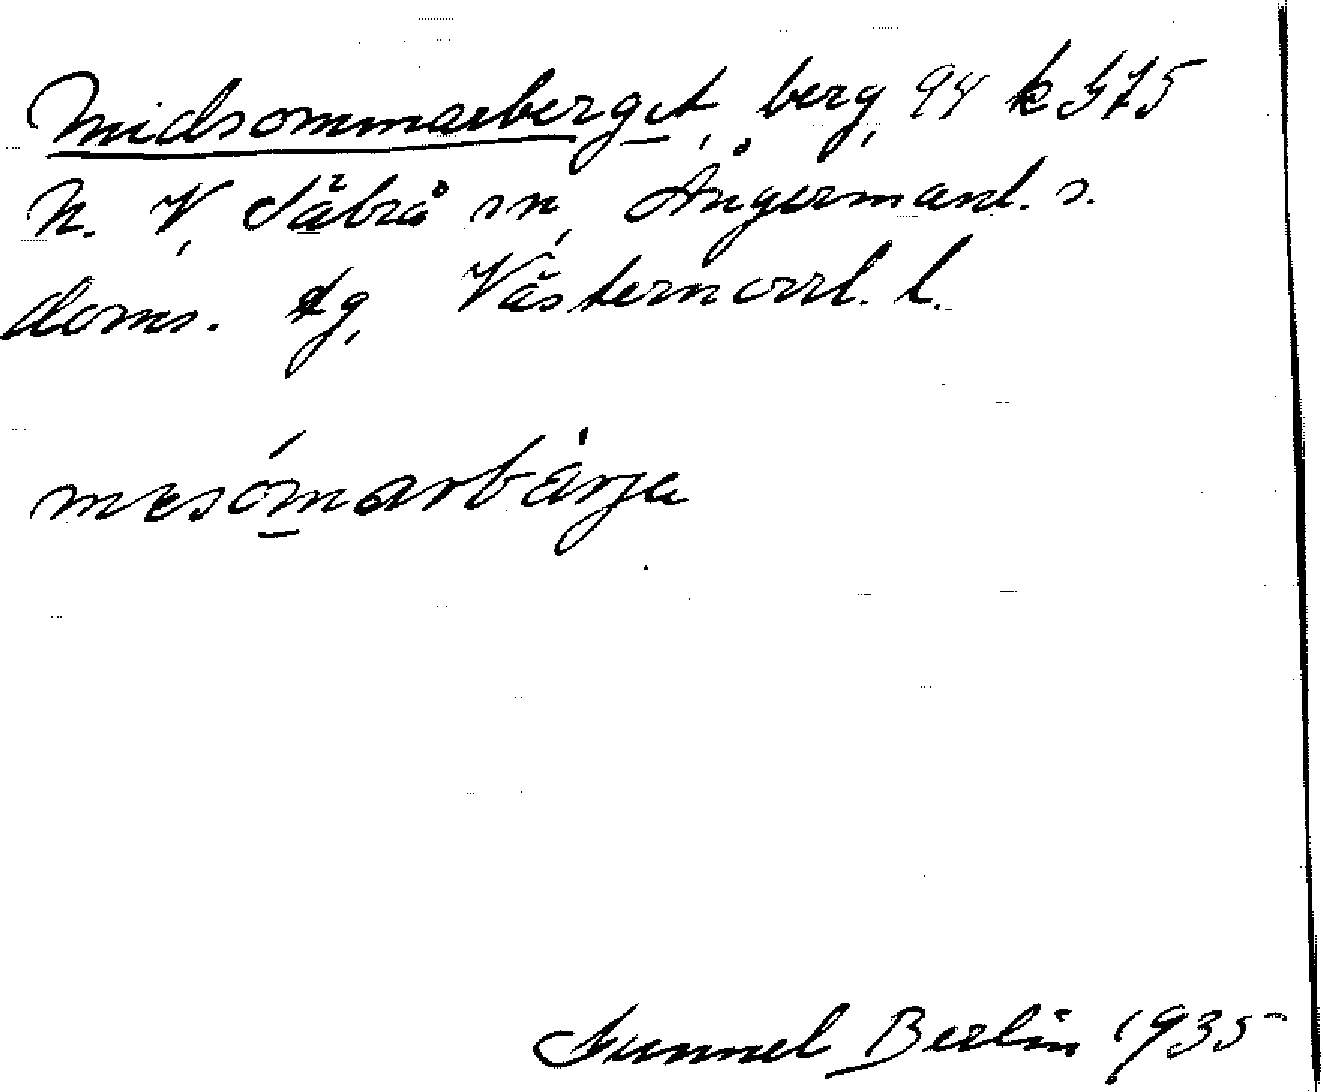 Midsommarberget, berg, 94 k 575
N. V, Säbrå sn, Ångermanl. s.
doms. tg, Västernorrl. l.
mesómarbärja
Gunnel Berlin 1935